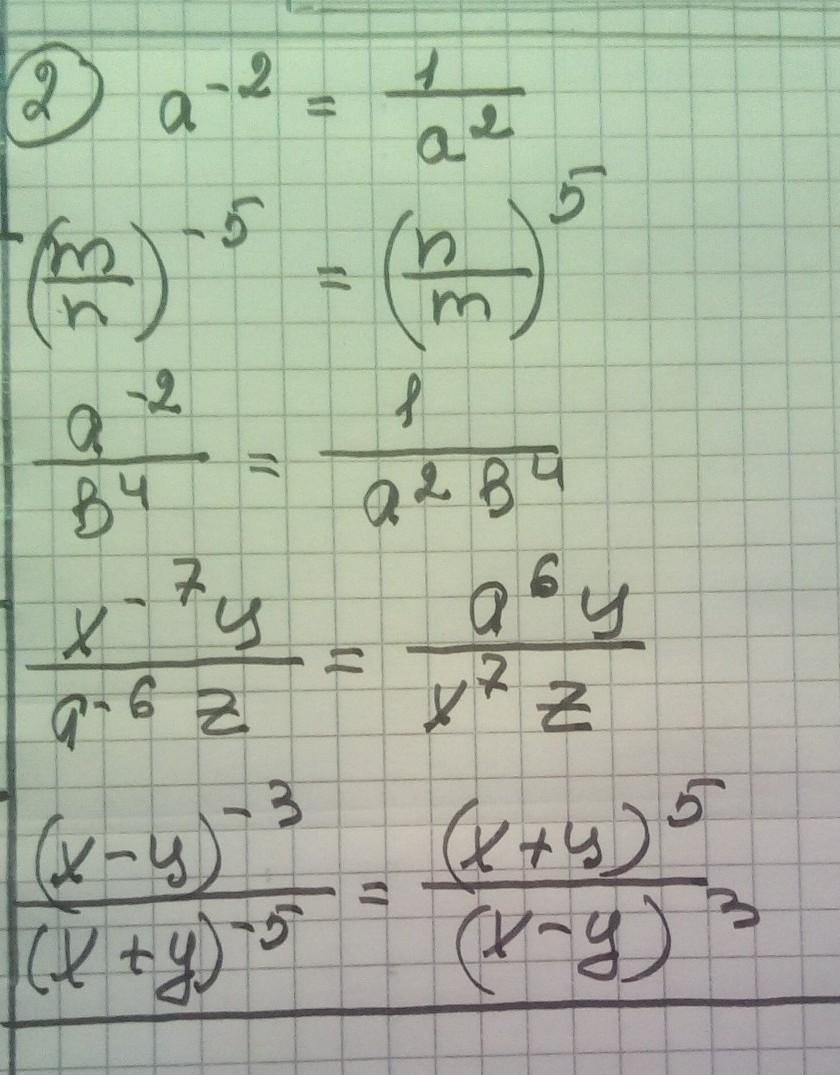 ② a⁻² = 1/a²
(m/n)⁻⁵ = (n/m)⁵
a⁻²/в⁴ = 1/(a² в⁴)
x⁻⁷y/(a⁻⁶ z) = a⁶y/(x⁷ z)
(x-y)⁻³/(x+y)⁻⁵ = (x+y)⁵/(x-y)³